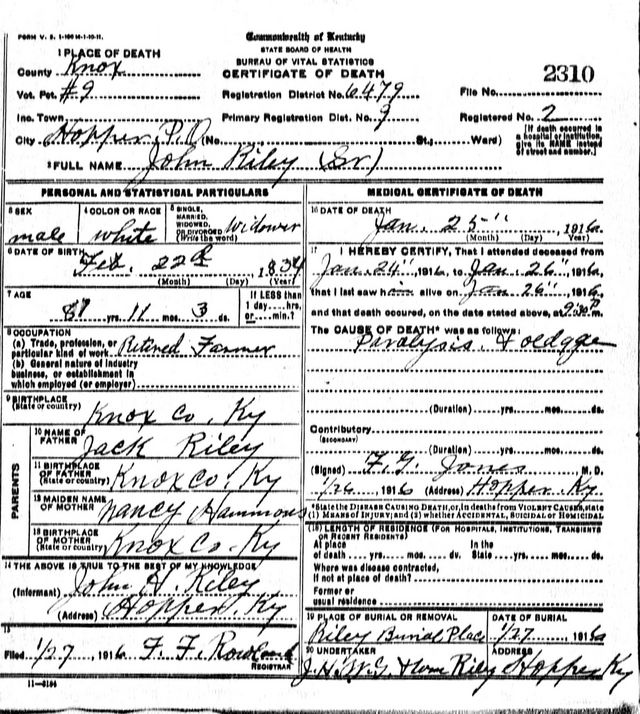 FORM V. S. 1-100 M-1-10-11.
Commonwealth of Kentucky
STATE BOARD OF HEALTH
BUREAU OF VITAL STATISTICS
CERTIFICATE OF DEATH
1 PLACE OF DEATH
County Knox
Vot. Pct. #9
Inc. Town
City Hopper, P.O. (No. St.; Ward)
Registration District No. 6479
Primary Registration Dist. No. 9
File No. 2310
Registered No. 2
[If death occurred in a hospital or institution, give its NAME instead of street and number.]
2 FULL NAME John Riley (Sr)
PERSONAL AND STATISTICAL PARTICULARS
3 SEX male
4 COLOR OR RACE white
5 SINGLE, MARRIED, WIDOWED, OR DIVORCED (Write the word) Widower
6 DATE OF BIRTH Feb. 22nd 1834
(Month) (Day) (Year)
7 AGE 81 yrs. 11 mos. 3 ds.
If LESS than 1 day,....hrs. or....min.?
8 OCCUPATION
(a) Trade, profession, or particular kind of work Retired Farmer
(b) General nature of industry business, or establishment in which employed (or employer)
9 BIRTHPLACE (State or country) Knox Co. Ky
PARENTS
10 NAME OF FATHER Jack Riley
11 BIRTHPLACE OF FATHER (State or country) Knox Co. Ky
12 MAIDEN NAME OF MOTHER Nancy Hammons
13 BIRTHPLACE OF MOTHER (State or country) Knox Co. Ky
14 THE ABOVE IS TRUE TO THE BEST OF MY KNOWLEDGE
(Informant) John H. Riley
(Address) Hopper, Ky
15
Filed 1/27, 1916 F. F. REGISTRAR
11-3184
MEDICAL CERTIFICATE OF DEATH
16 DATE OF DEATH Jan. 25" 1916
(Month) (Day) (Year)
17 I HEREBY CERTIFY, That I attended deceased from
Jan 24", 1916, to Jan. 26", 1916,
that I last saw him alive on Jan 26", 1916,
and that death occurred, on the date stated above, at 9:30 P m.
The CAUSE OF DEATH* was as follows:
Paralysis. & old age
(Duration) yrs. mos. ds.
Contributory
(SECONDARY)
(Duration) yrs. mos. ds.
(Signed) F. G. Jones M. D.
1/26, 1916 (Address) Hopper Ky.
*State the DISEASE CAUSING DEATH, or, in deaths from VIOLENT CAUSES, state (1) MEANS OF INJURY; and (2) whether ACCIDENTAL, SUICIDAL or HOMICIDAL
(18) LENGTH OF RESIDENCE (FOR HOSPITALS, INSTITUTIONS, TRANSIENTS OR RECENT RESIDENTS)
At place of death yrs. mos. ds. In the State yrs. mos. ds.
Where was disease contracted, If not at place of death?
Former or usual residence
19 PLACE OF BURIAL OR REMOVAL Riley Burial Place
DATE OF BURIAL 1/27, 1916
20 UNDERTAKER J. H. W. G. & Riley
ADDRESS Hopper Ky